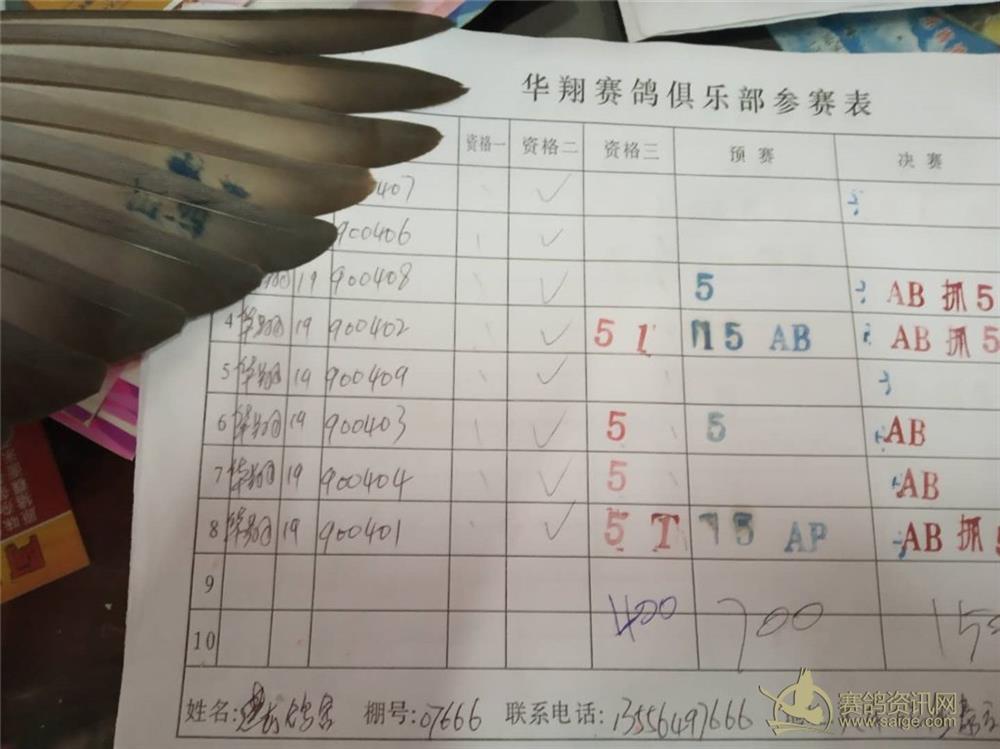 华翔赛鸽俱乐部参赛表
资格一 资格二 资格三 预赛 决赛
407 ✓
900406 ✓
19 900408 ✓ 5 AB 抓 5
4 华翔 19 900402 ✓ 5 1 5 AB AB 抓 5
5 华翔 19 900409 ✓
6 华翔 19 900403 ✓ 5 5 AB
7 华翔 19 900404 ✓ 5 AB
8 华翔 19 900401 ✓ 5 T 5 AB 抓
9
10 400 700
姓名: 棚号: 07666 联系电话: 13556497666
赛鸽资讯网
www.saige.com